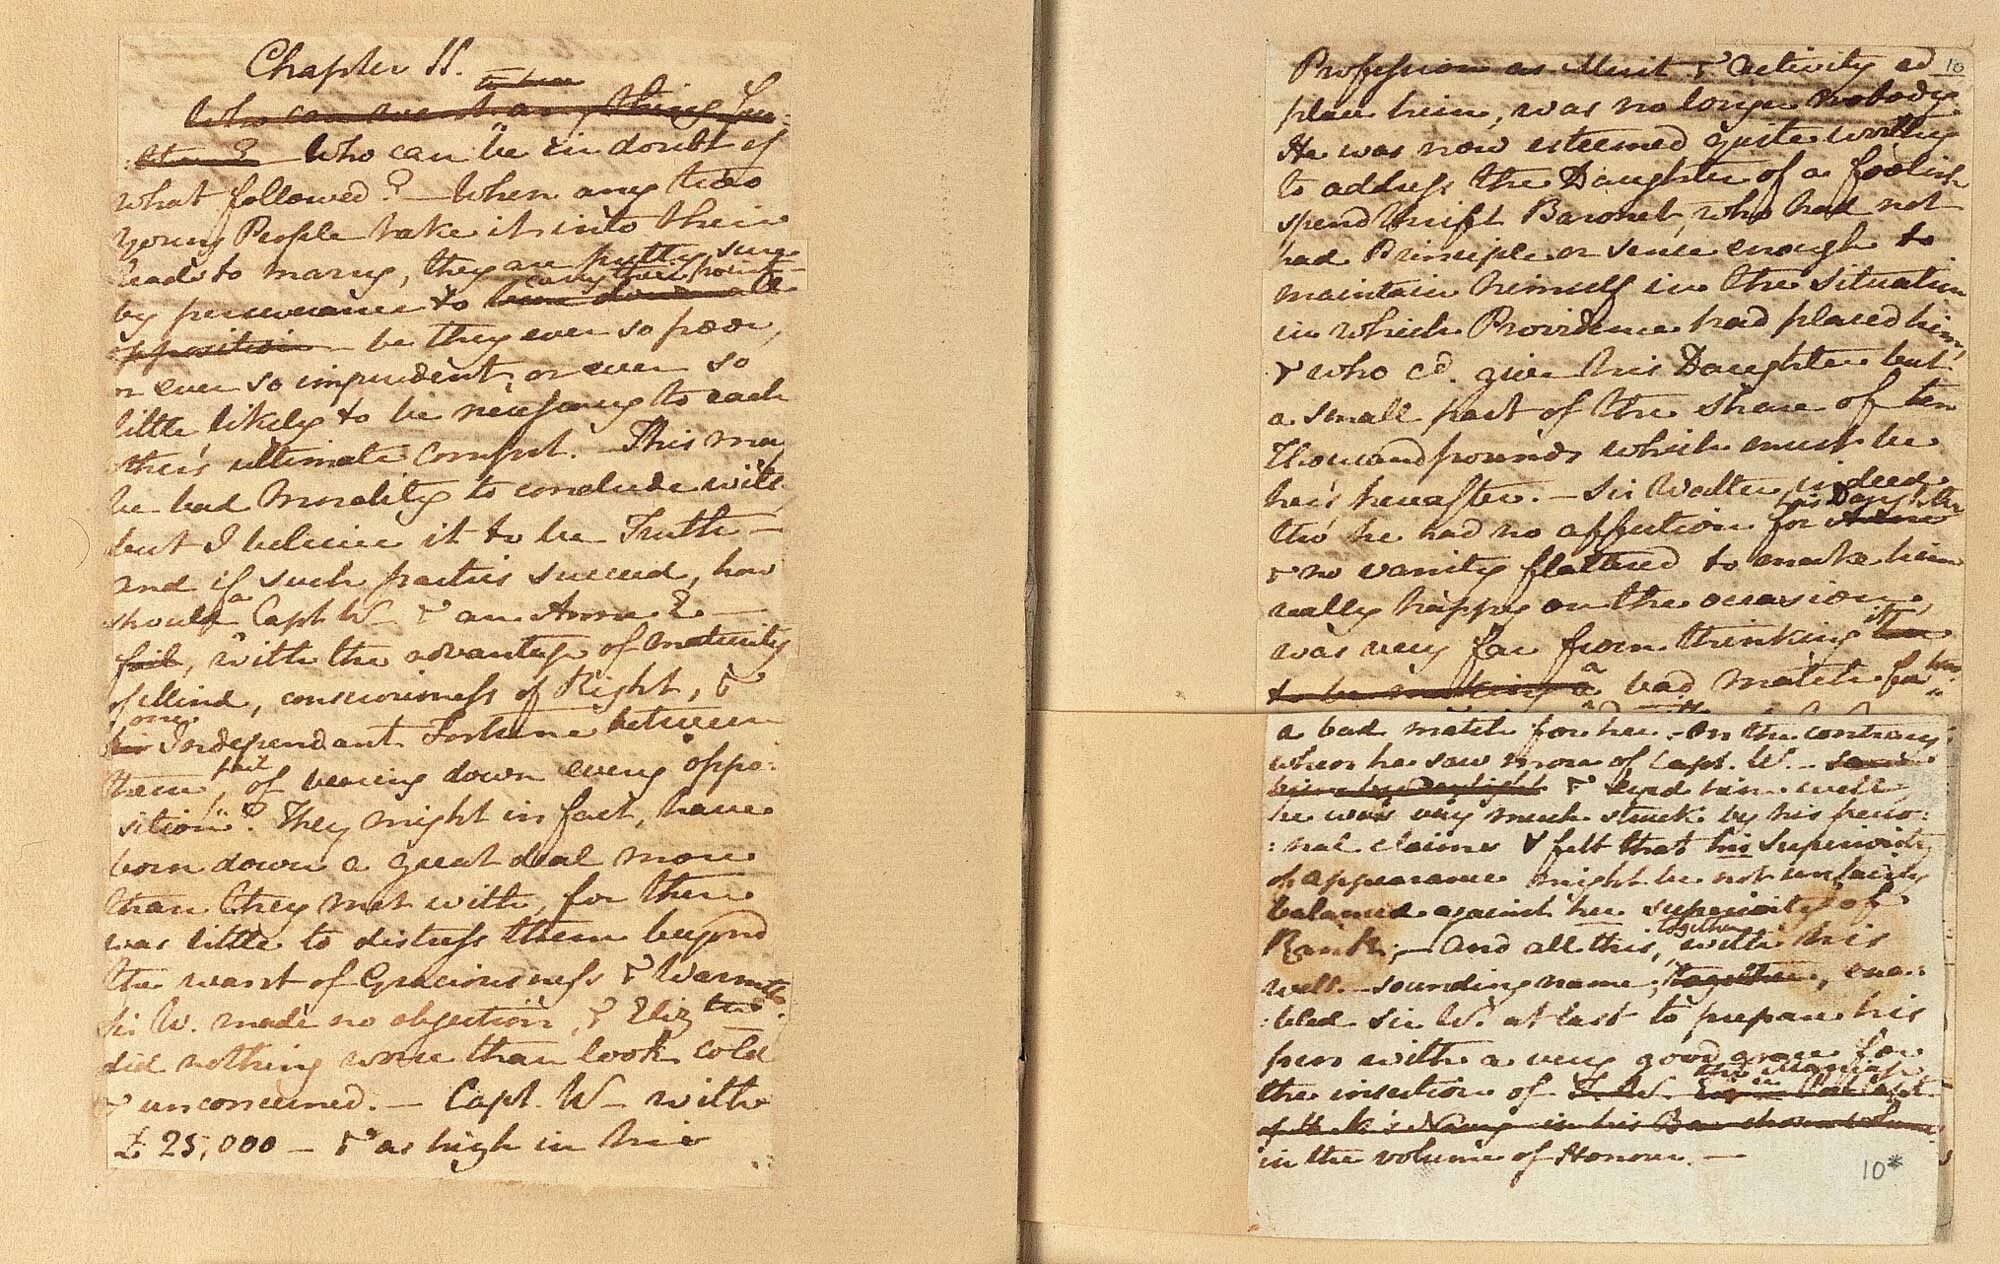 Chapter 11.
to hear
Who can want any thing fur:
:ther? Who can be in doubt of
what followed? – When any two
young People take it into their
heads to marry, they are pretty sure
carry their point –
by perseverance to bear down all
opposition be they ever so poor,
or ever so imprudent, or ever so
little likely to be necessary to each
other's ultimate comfort. This may
be bad Morality to conclude with,
but I believe it to be Truth –
and if such parties succeed, how
should a Capt W– & an Anne E–
fail, with the advantage of maturity
of Mind, consciousness of Right, &
one
Independant Fortune between
them, fail, of bearing down every oppo:
:sition? They might in fact, have
born down a great deal more
than they met with, for there
was little to distress them beyond
the want of Graciousness & Warmth.
Sir W. made no objection, & Eliz:th
did nothing worse than look cold
& unconcerned. – Capt. W– with
£25,000 – & as high in his
Profession as Merit & Activity cd
10
place him, was no longer nobody.
He was now esteemed quite worthy
to address the Daughter of a foolish
spendthrift Baronet, who had not
had Principle or sense enough to
maintain himself in the Situation
in which Providence had placed him,
& who cd. give his Daughter but
a small part of the share of ten
Thousand pounds which must be
her's hereafter. – Sir Walter indeed
his Daughter
tho' he had no affection for Anne
& no vanity flattered to make him
really happy on the occasion,
was very far from thinking it
to be making a bad match for her.
a bad match for her. On the contrary
when he saw more of Capt. W. –
him by daylight & eyed him well,
he was very much struck by his perso:
:nal claims & felt that his superiority
of appearance might be not unfairly
balanced against her superiority of
Rank; – and all this, together with his
well-sounding name, together, ena:
:bled Sir W. at last to prepare his
pen with a very good grace for
the Marriage
the insertion of
in the volume of Honour. –
10*